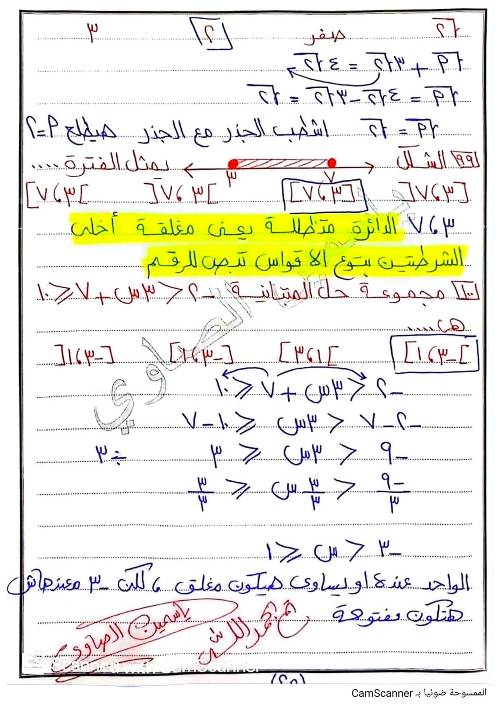 √٢ صفر ٢ ٣
√م + ٣√٢ = ٤√٢
√م = ٤√٢ - ٣√٢ = √٢
√م = √٢ اشطب الجذر مع الجذر هيطلع م = ٢
٩٩ الشكل ٣ ٧ يمثل الفترة ....
]٧،٣] [٧،٣] ]٧،٣[ [٧،٣[
٧،٣ الدائرة متظللة يعنى مغلقة أخلى
الشرطتين بتوع الأقواس تبص للرقم
١٠٠ مجموعة حل المتباينة -٢ < ٣س + ٧ ⩽ ١٠
هى ....
]-١،٣] [١،٣] [-١،٣] [-١،٣[
-٢ < ٣س + ٧ ⩽ ١٠
-٢-٧ < ٣س ⩽ ١٠-٧
-٩ < ٣س ⩽ ٣ ÷٣
-٩/٣ < ٣/٣ س ⩽ ٣/٣
-٣ < س ⩽ ١
الواحد عنده او يساوى هيكون مغلق ، لكن -٣ معندهاش
هتكون مفتوحة
تم بحمد الله
ياسمين الصاوى
ياسمين الصاوي
Scanned with CamScanner
(٢٥)
الممسوحة ضوئيا بـ CamScanner